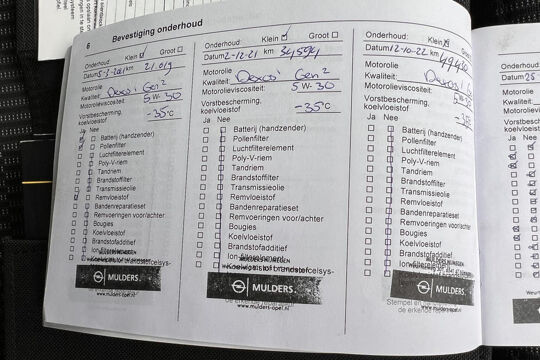 6 Bevestiging onderhoud
Onderhoud: Klein Groot
Datum 5-3-2021 km 21.019
Motorolie
Kwaliteit: Dexos 1 Gen 2
Motorolieviscositeit: 5W-30
Vorstbescherming,
koelvloeistof -35°C
Ja Nee
Batterij (handzender)
Pollenfilter
Luchtfilterelement
Poly-V-riem
Tandriem
Brandstoffilter
Transmissieolie
Remvloeistof
Bandenreparatieset
Remvoeringen voor/achter
Bougies
Koelvloeistof
Brandstofadditief
MULDERS
www.mulders-opel.nl
Onderhoud: Klein Groot
Datum 2-12-21 km 34594
Motorolie
Kwaliteit: Dexos 1 Gen 2
Motorolieviscositeit: 5W-30
Vorstbescherming,
koelvloeistof -35°C
Ja Nee
Batterij (handzender)
Pollenfilter
Luchtfilterelement
Poly-V-riem
Tandriem
Brandstoffilter
Transmissieolie
Remvloeistof
Bandenreparatieset
Remvoeringen voor/achter
Bougies
Koelvloeistof
Brandstofadditief
MULDERS
www.mulders-opel.nl
Onderhoud: Klein Groot
Datum 12-10-22 km
Motorolie
Kwaliteit: Dexos 1 Gen
Motorolieviscositeit: 5W
Vorstbescherming,
koelvloeistof
Ja Nee
Batterij (handzender)
Pollenfilter
Luchtfilterelement
Poly-V-riem
Tandriem
Brandstoffilter
Transmissieolie
Remvloeistof
Bandenreparatieset
Remvoeringen voor/achter
Bougies
Koelvloeistof
Brandstofadditief
MULDERS
www.mulders-opel.nl
Stempel en
de erkende
Datum 25
Motorolie
Kwaliteit:
Ja Nee